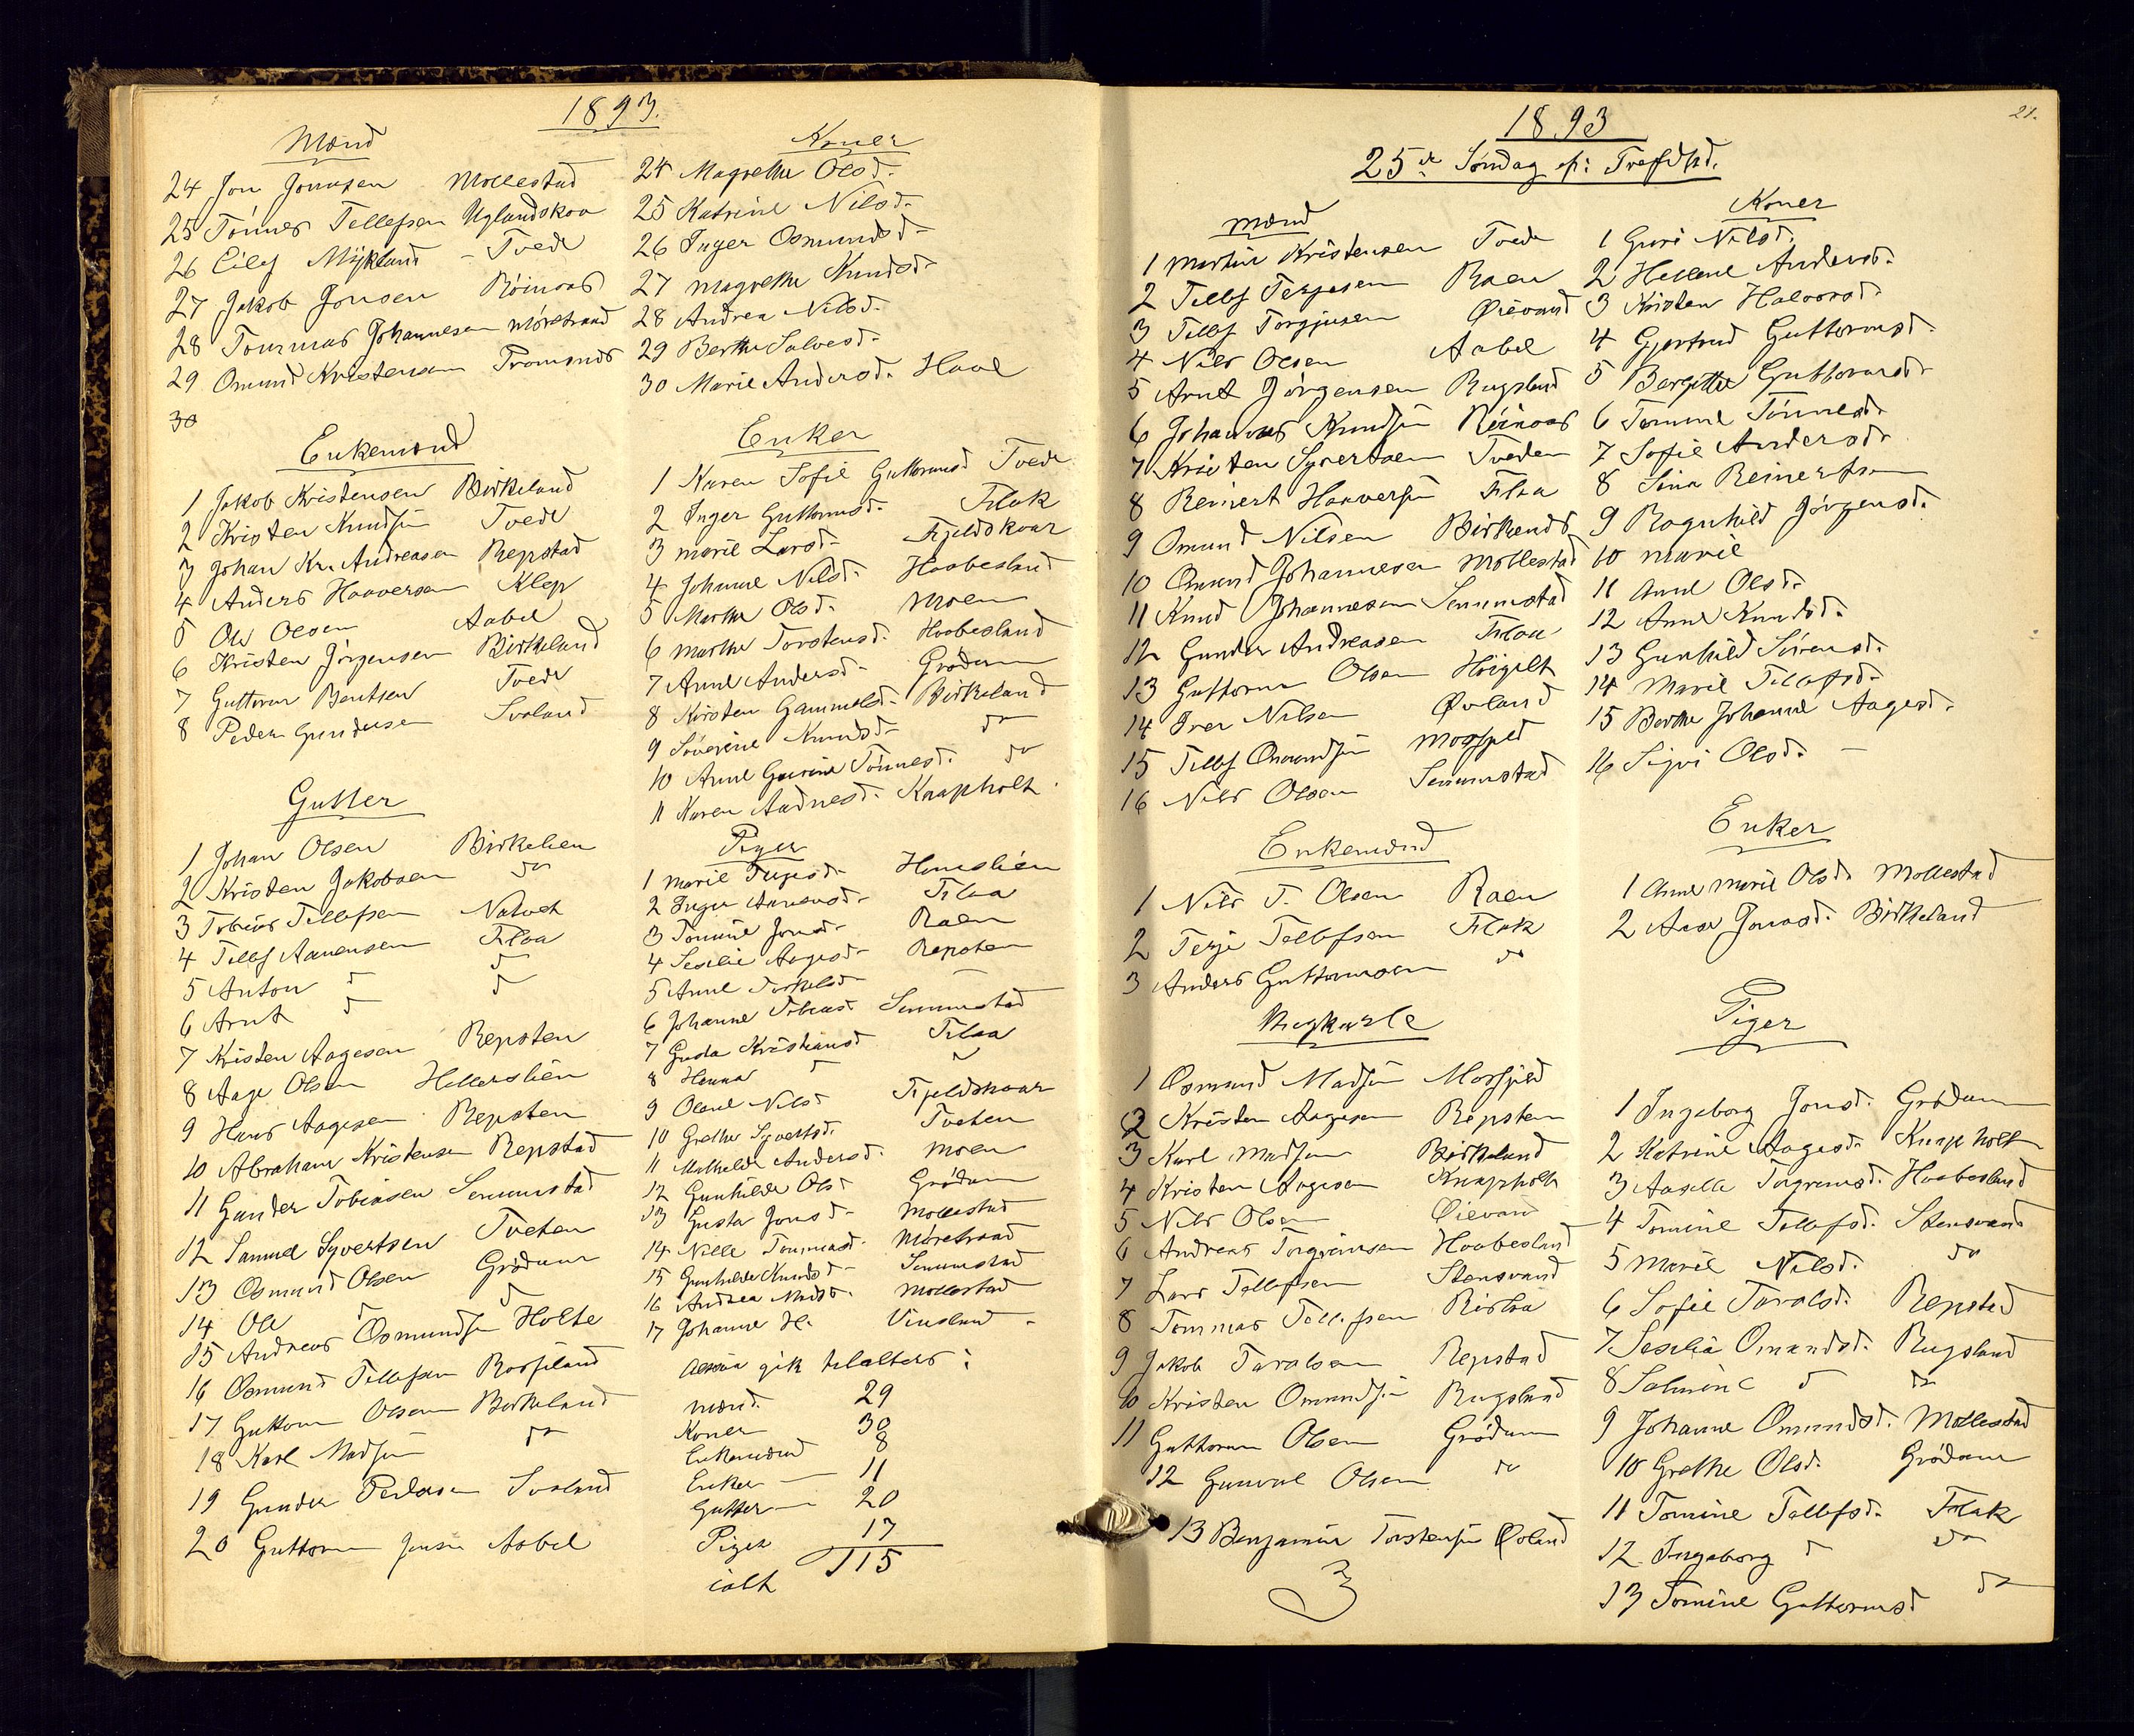 1893.
Mænd
24 Jon Jonasen Mollestad
25 Tønnes Tellefsen Uglandskoa
26 Eilef Mykland - Tvede
27 Jakob Jonsen Röinaas
28 Tommas Johannesen Mörstraad
29 Omund Kristensen Tromsnds
30
Koner
24 Magrethe Olsd.
25 Katrine Nilsd.
26 Inger Osmundsd.
27 Magrethe Knudsd.
28 Andrea Nilsd.
29 Berthe Salvesd.
30 Marie Andersd. Haal
Enkemænd
1 Jakob Kristensen Birkeland
2 Kristen Knudsen Tvede
3 Johan Kr. Andreasen Repstad
4 Anders Haaversen Klep
5 Ole Olsen Aabel
6 Kristen Jörgensen Birkeland
7 Guttorm Bentsen Tvede
8 Peder Gundersen Svaland
Enker
1 Karen Sofie Guttormsd Tvede
2 Inger Guttormsd. Flak
3 Marie Larsd. Fjeldskaar
4 Johanne Nilsd. Haabesland
5 Marthe Olsd. Moen
6 Marthe Torstensd. Haabesland
7 Anne Andersd. Grödum
8 Kirsten Gammelsd. Birkeland
9 Söverine Knudsd. do
10 Anne Gurine Tönnesd. do
11 Karen Aadnesd. Knapholt
Gutter
1 Johan Olsen Birkelien
2 Kristen Jakobsen do
3 Tobias Tellefsen Natvet
4 Tellef Aanensen Flaa
5 Anton d d
6 Arnt d d
7 Kristen Aagesen Repsten
8 Aage Olsen Hellerslien
9 Hans Aagesen Repsten
10 Abraham Kristensen Repstad
11 Gunder Tobiasen Senumstad
12 Samuel Syvertsen Tveten
13 Osmund Olsen Grödum
14 Ole d d
15 Andreas Osmundsen Holte
16 Osmund Tellefsen Rosseland
17 Guttorm Olsen Birkeland
18 Karl Madsen do
19 Gunder Pedersen Svaland
20 Guttorm Jensen Aabel
Piger
1 Marie Terjesd. Homelien
2 Inger Aanensd. Flaa
3 Tomine Jonsd. Raen
4 Seselie Aagesd. Repsten
5 Anne Torkelsd.
6 Johanne Tobiasd. Senumstad
7 Gusta Kristiansd Flaa
8 Hanna d
9 Olene Nilsd Fjeldskaar
10 Grethe Syvertsd. Tveten
11 Mathilde Andersd. Moen
12 Gunhilde Olsd Grödum
13 Gusta Jonsd. Mollestad
14 Nille Tommasd. Mörstraad
15 Gunhilde Knudsd. Senumstad
16 Andrea Madsd. Mollestad
17 Johanne H. Vinsland
gik tilalters:
mænd. 29
Koner 30
Enkemænd 8
Enker 11
Gutter 20
Piger 17
ialt 115
21.
1893
25de Söndag ef: Trefdhd.
Mænd
1 Martin Kristensen Tvede
2 Tellef Terjesen Raen
3 Tellef Torgjusen Øievand
4 Nils Olsen Aabel
5 Arnt Jörgensen Rugsland
6 Johannes Knudsen Röinaas
7 Kristen Syvertsen Tveden
8 Reinert Haaversen Flaa
9 Omund Nilsen Birkends
10 Omund Johannesen Mollestad
11 Knud Johannesen Senumstad
12 Gunder Andreasen Flaa
13 Guttorm Olsen Höigilt
14 Iver Nilsen Øvland
15 Tellef Omundsen Mosfjeld
16 Nils Olsen Senumstad
Koner
1 Guri Nilsd.
2 Hellene Andersd.
3 Kirsten Halvorsd.
4 Gjertrud Guttormsd.
5 Bergitte Guttormsd.
6 Tomine Tönnesd.
7 Sofie Andersd.
8 Sina Reinertsen
9 Ragnhild Jörgensd.
10 Marie
11 Anne Olsd.
12 Anne Knudsd.
13 Gunhild Sörensd.
14 Marie Tellefsd.
15 Berthe Johanne Aagesd.
16 Sigri Olsd. -
Enkemænd
1 Nils T. Olsen Raen
2 Terje Tellefsen Flak
3 Anders Guttormsen do
Enker
1 Anne Marie Olsd. Mollestad
2 Aase Jonasd. Birkeland
Ungkarle
1 Osmund Madsen Mosfjeld
2 Kristen Aagesen Repsten
3 Karl Madsen Birkeland
4 Kristen Aagesen Knapholt
5 Nils Olsen Øievand
6 Andreas Torgrimsen Haabesland
7 Lars Tellefsen Stensvand
8 Tommas Tellefsen Rislaa
9 Jakob Taralsen Repstad
10 Kristen Omundsen Rugsland
11 Guttorm Olsen Grödum
12 Gunval Olsen do
13 Benjamin Torstensen Øvland
Piger
1 Ingeborg Jonsd. Grödum
2 Katrine Aagesd. Knapholt
3 Aaselle Torgrimsd. Haabesland
4 Tomine Tellefsd. Stensvand
5 Marie Nilsd. do
6 Sofie Taralsd. Repstad
7 Seselia Omundsd. Rugsland
8 Salmine d do
9 Johanne Omundsd. Mollestad
10 Grethe Olsd. Grödum
11 Tomine Tellefsd. Flak
12 Ingeborg d do
13 Tomine Guttormsd do